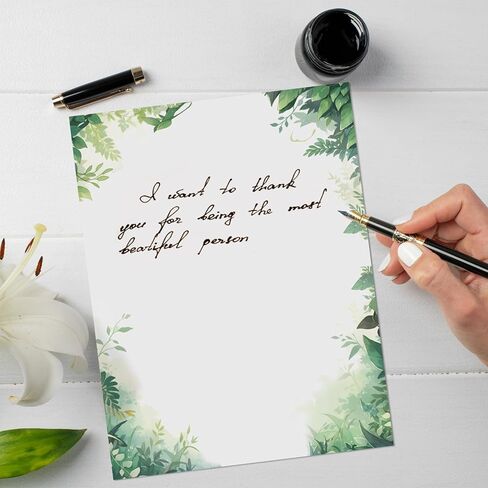 I want to thank
you for being the most
beatiful person